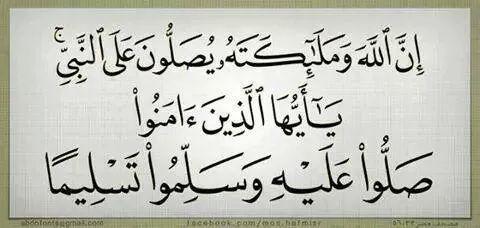 إِنَّ ٱللَّهَ وَمَلَـٰٓئِكَتَهُۥ يُصَلُّونَ عَلَى ٱلنَّبِىِّ ۚ
يَـٰٓأَيُّهَا ٱلَّذِينَ ءَامَنُوا۟
صَلُّوا۟ عَلَيْهِ وَسَلِّمُوا۟ تَسْلِيمًا
abdofonts@gmail.com facebook.com/mos.hafmisr